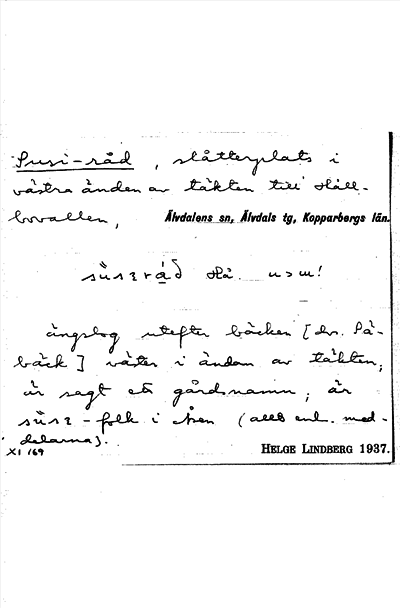 Susi-råd, slåtterplats i
västra änden av täkten till Håll-
bovallen, Älvdalens sn, Älvdals tg, Kopparbergs län.
Hå.
ängslog utefter bäcken [dv. På-
bäck] väster i ändan av täkten;
är sagt ett gårdsnamn; är
-folk i Åsen (allt enl. med-
delarna).
XI 169
HELGE LINDBERG 1937.